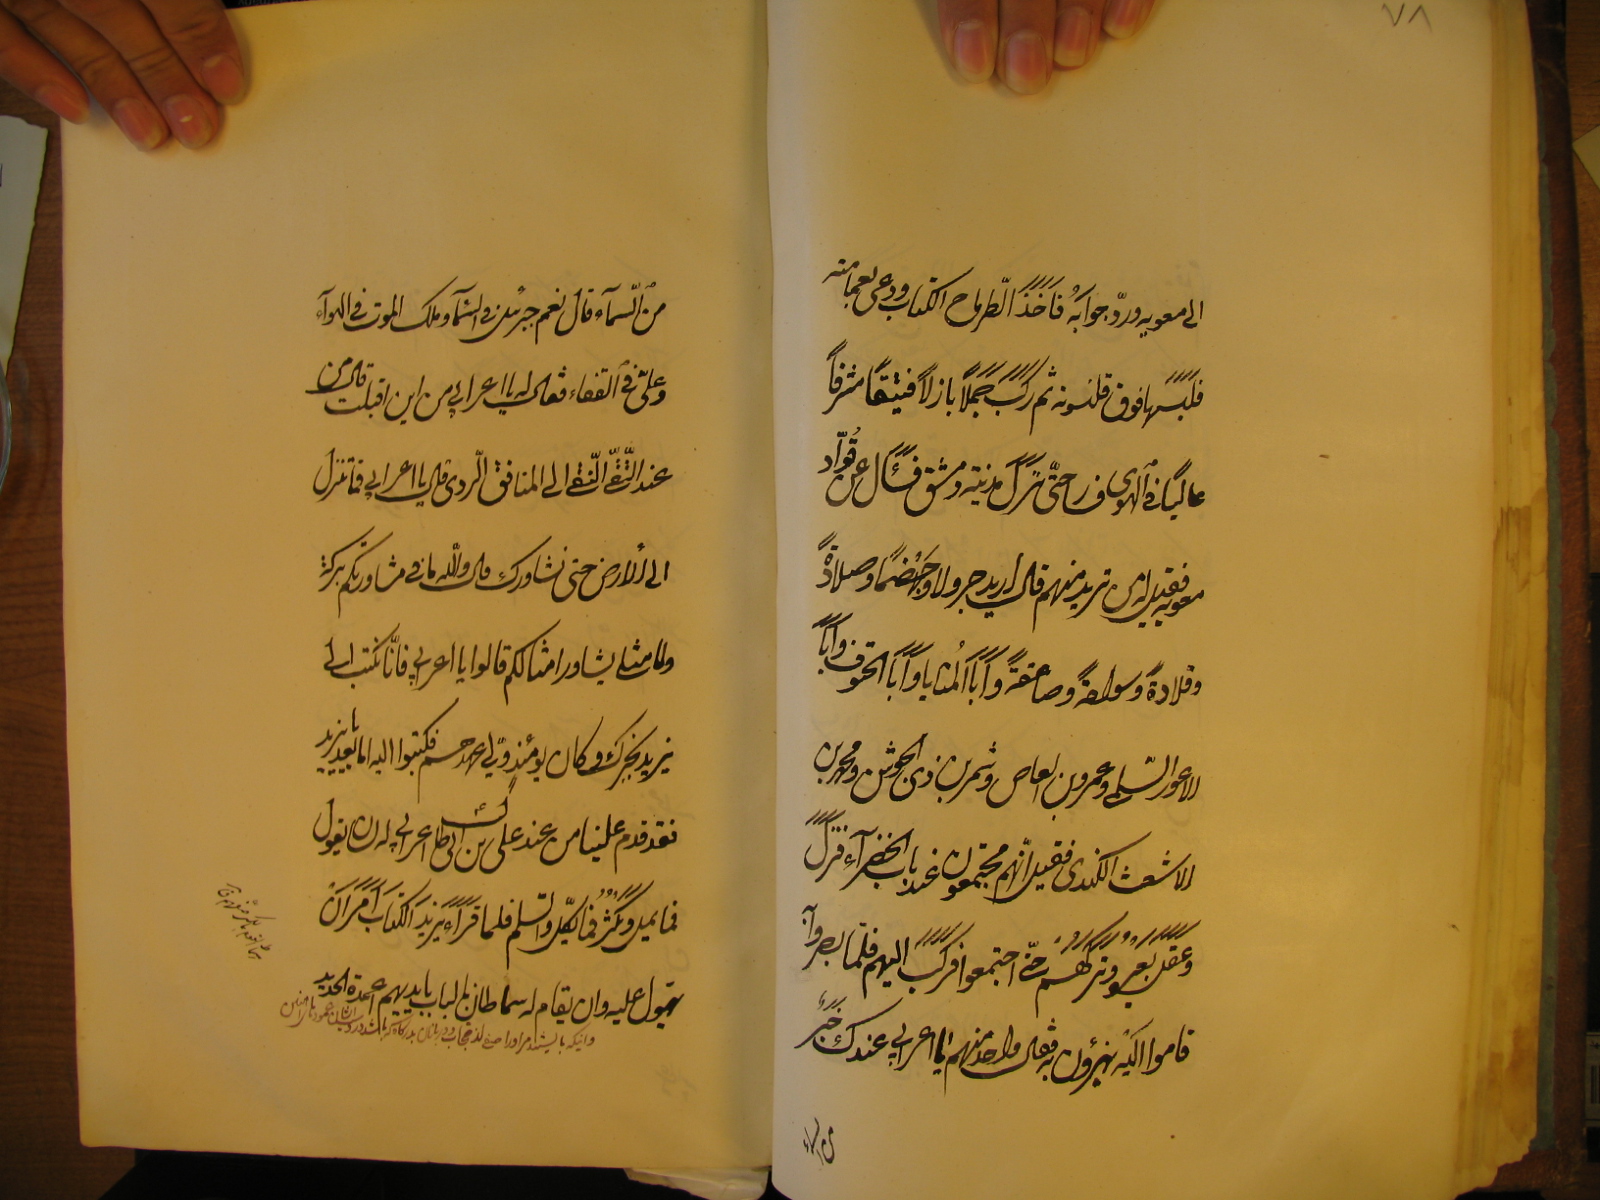 ٧٨
الى معويه وردّ جوابَهُ فَاَخَذَ الّطرماح الكتاب ودعى بعمامته
فلبسها فوق قلنسوته ثم ركب جَمَلاً بازلاً فتيقاً مشرفاً
عالياً فى الهوى فسار حتّى نزلَ مدينته دمشق فسَئَالَ عن قُوّاد
معويه فقيل له من تريد منهم قال اريد جرولا وجَهْضَماً وصلادةً
وقلادةً وسولقةً وصاعقةً واَبَا المُنايا واَبَا الحتوف واَبَا
الاعور السّلمى وعمرو بن العاص وشمر بن ذى الجوشن ومحمد بن
الاشعث الكندى فقيل انّهم مجتمعون عند باب الخضرآء فنزلَ
وعَقَلَ بعيره وتركهُم حتّى اجتمعوا فركبَ اليهم فلمّا بصروا به
قاموا اليَه يهزؤن به فقال واحد منهم ايا اعرابى عندك خبرٌ
من السماء
من السّمآء قال نعم جبرئيل فى السّمآء وملك الموت فى الهوآء
وعلىّ فى القفاء فقال له يا اعرابى من اين اقبلت قال من
عند التّقىّ النّقى الى المنافق الّردى قال يا اعرابى فما تنزل
الى الارض حتى نشاورك قال والله ما فى مشاورتكم بركة
ولا مثلى يشاور امثالكم قالوا يا اعربى فانّا نكتب الى
يزيد بخبرك وكان يومئذ ولّى عهدهم فكتبوا اليه اما بعد يا يزيد
فقد قدم علينا من عند على بن ابى طالب اعرابى له لسان يقول
فما يمل ويُكثرُ فما يكلّ والسلم فلما قرأءَ يزيدَ الكتابَ اَمرَ اَنْ
يهول عليه وان يقام له سماطان بالباب بايديهم اعمدة الحديد